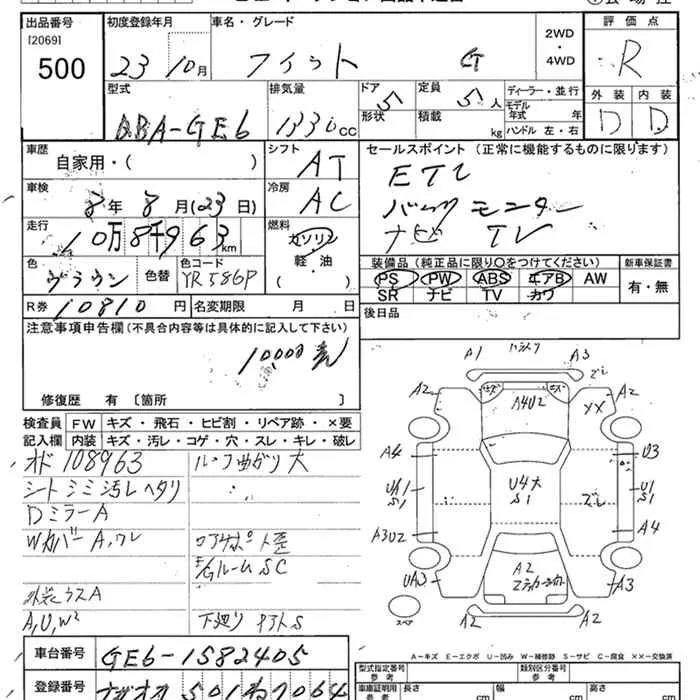 出品番号 初度登録年月 車名・グレード 2WD・4WD 評価点
[2069]
500 23 10月 フィット G R
型式 排気量 ドア 5 定員 5人 ディーラー・並行 外装 内装
DBA-GE6 1330cc 形状 積載 kg モデル年式 年 D D
ハンドル 左・右
車歴 シフト セールスポイント (正常に機能するものに限ります)
自家用・( ) AT ETC
車検 冷房 バックモニター
8年 8月(23日) AC ナビ TV
走行 燃料
10万8千963km ガソリン
軽・油
( )
色 色替 色コード 装備品 (純正品に限り〇をつけてください) 新車保証書
ブラウン YR586P PS PW ABS エアB AW 有・無
SR ナビ TV カワ
R券 10810円 名変期限 月 日 後日品
注意事項申告欄(不具合内容等は具体的に記入して下さい)
10,000
修復歴 有〔箇所 〕
検査員記入欄 FW キズ・飛石・ヒビ割・リペア跡・×要
内装 キズ・汚レ・コゲ・穴・スレ・キレ・破レ
オド 108963 ルーフ曲がり大
シートシミ汚レヘタリ
DミラーA
WカバーA,ワレ
GルームSC
A,U,W² 下廻り サビS
A1 A3
A2 A4U2 ズレ A2
XX
A4 U3
UA1 S1 U4大 S1 ズレ U1 S1
A3U2 A4
UA3 A2 A3
スペア A2 A2
A-キズ E-エクボ U-凹み W-補修跡 S-サビ C-腐食 ××-交換済
車台番号 GE6-1582405
型式指定番号 参考 類別区分番号 参考
登録番号 501 7064
車庫証明用 参考 長さ cm 幅 cm 高さ cm